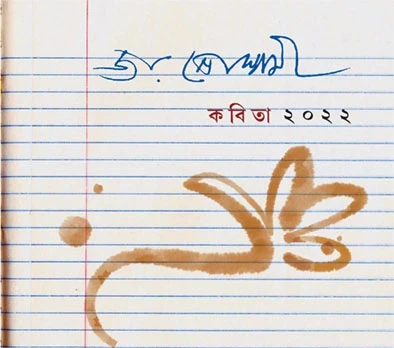 জয় গোস্বামী
কবিতা ২০২২